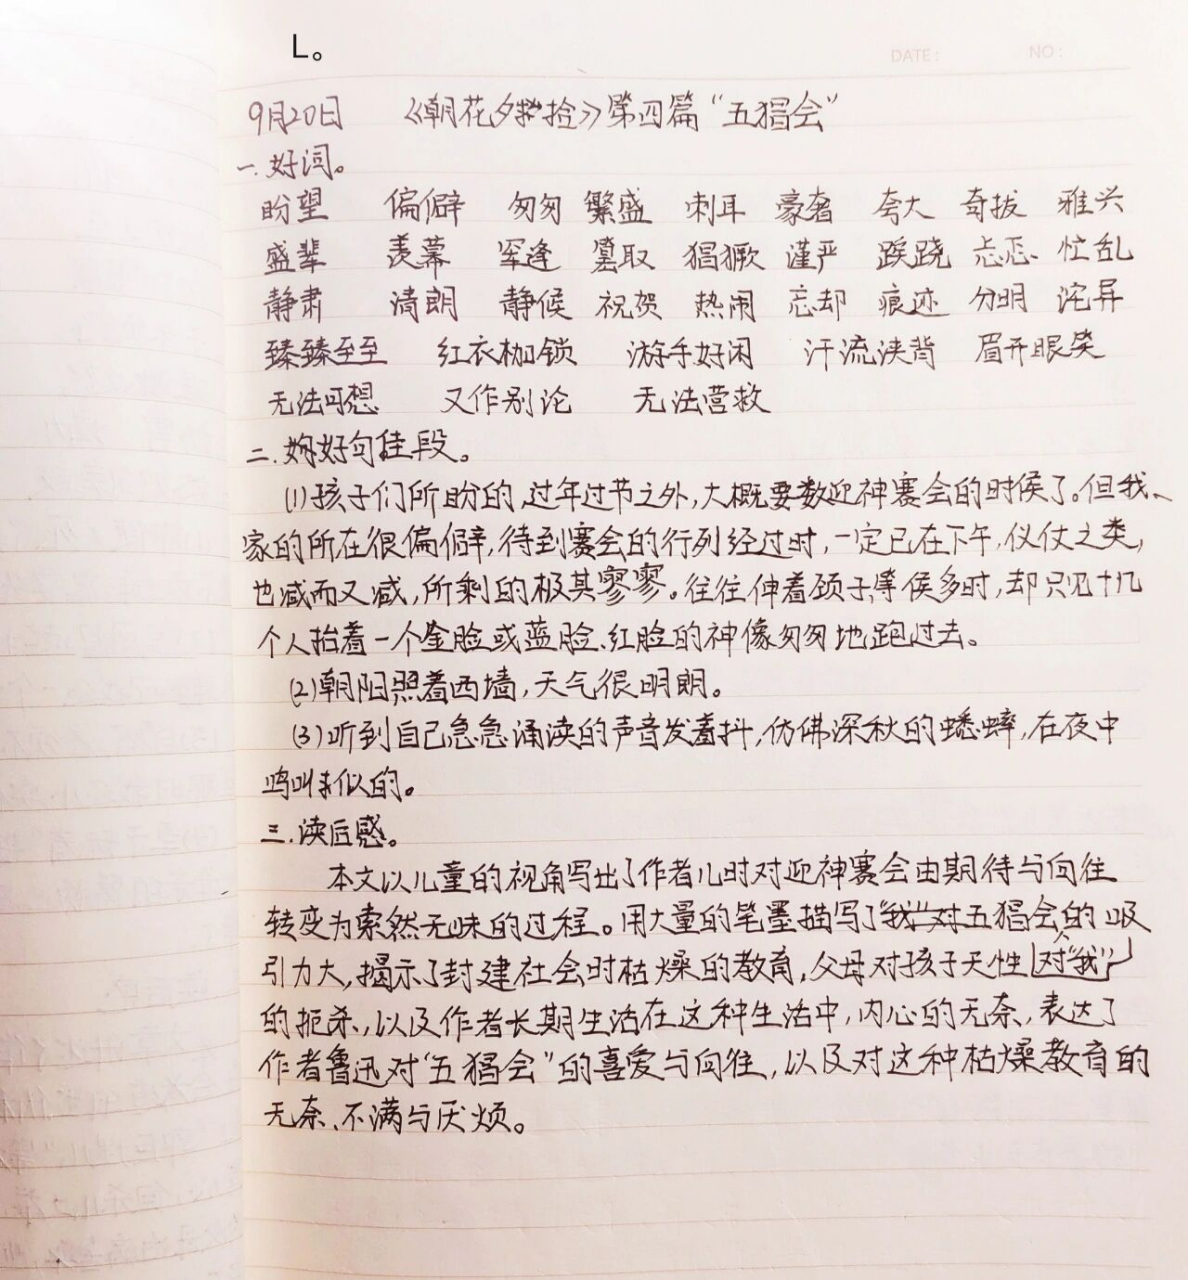 L。
DATE: NO:
9月20日 《朝花夕拾》第四篇“五猖会”
一.好词。
盼望 偏僻 匆匆 繁盛 刺耳 豪奢 夸大 奇拔 雅兴
盛举 羡慕 罕逢 篡取 猖獗 谨严 蹊跷 忐忑 忙乱
静肃 清朗 静候 祝贺 热闹 忘却 痕迹 分明 诧异
臻臻至至 红衣枷锁 游手好闲 汗流浃背 眉开眼笑
无法可想 又作别论 无法营救
二.好句佳段。
(1)孩子们所盼的,过年过节之外,大概要数迎神赛会的时侯了。但我、
家的所在很偏僻,待到赛会的行列经过时,一定已在下午,仪仗之类,
也减而又减,所剩的极其寥寥。往往伸着颈子等侯多时,却只见十几
个人抬着一个金脸或蓝脸、红脸的神像匆匆地跑过去。
(2)朝阳照着西墙,天气很明朗。
(3)听到自己急急诵读的声音发着抖,仿佛深秋的蟋蟀,在夜中
鸣叫似的。
三.读后感。
本文以儿童的视角写出了作者儿时对迎神赛会由期待与向往
转变为索然无味的过程。用大量的笔墨描写了五猖会对“我”的吸
引力大,揭示了封建社会时枯燥的教育,父母对孩子天性
的扼杀,以及作者长期生活在这种生活中,内心的无奈,表达了
作者鲁迅对“五猖会”的喜爱与向往,以及对这种枯燥教育的
无奈、不满与厌烦。